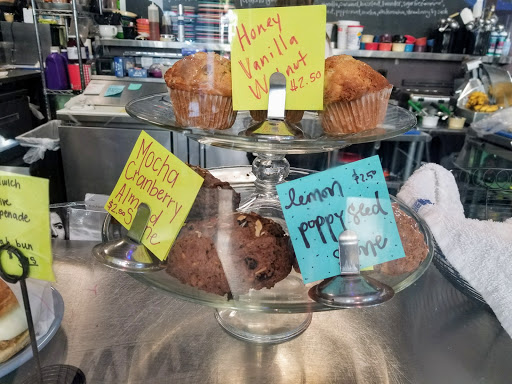 Honey
Vanilla
Walnut
$2.50
Mocha
Cranberry
Almond
Scone
$2.50
lemon $2.50
poppy seed
scone
bun